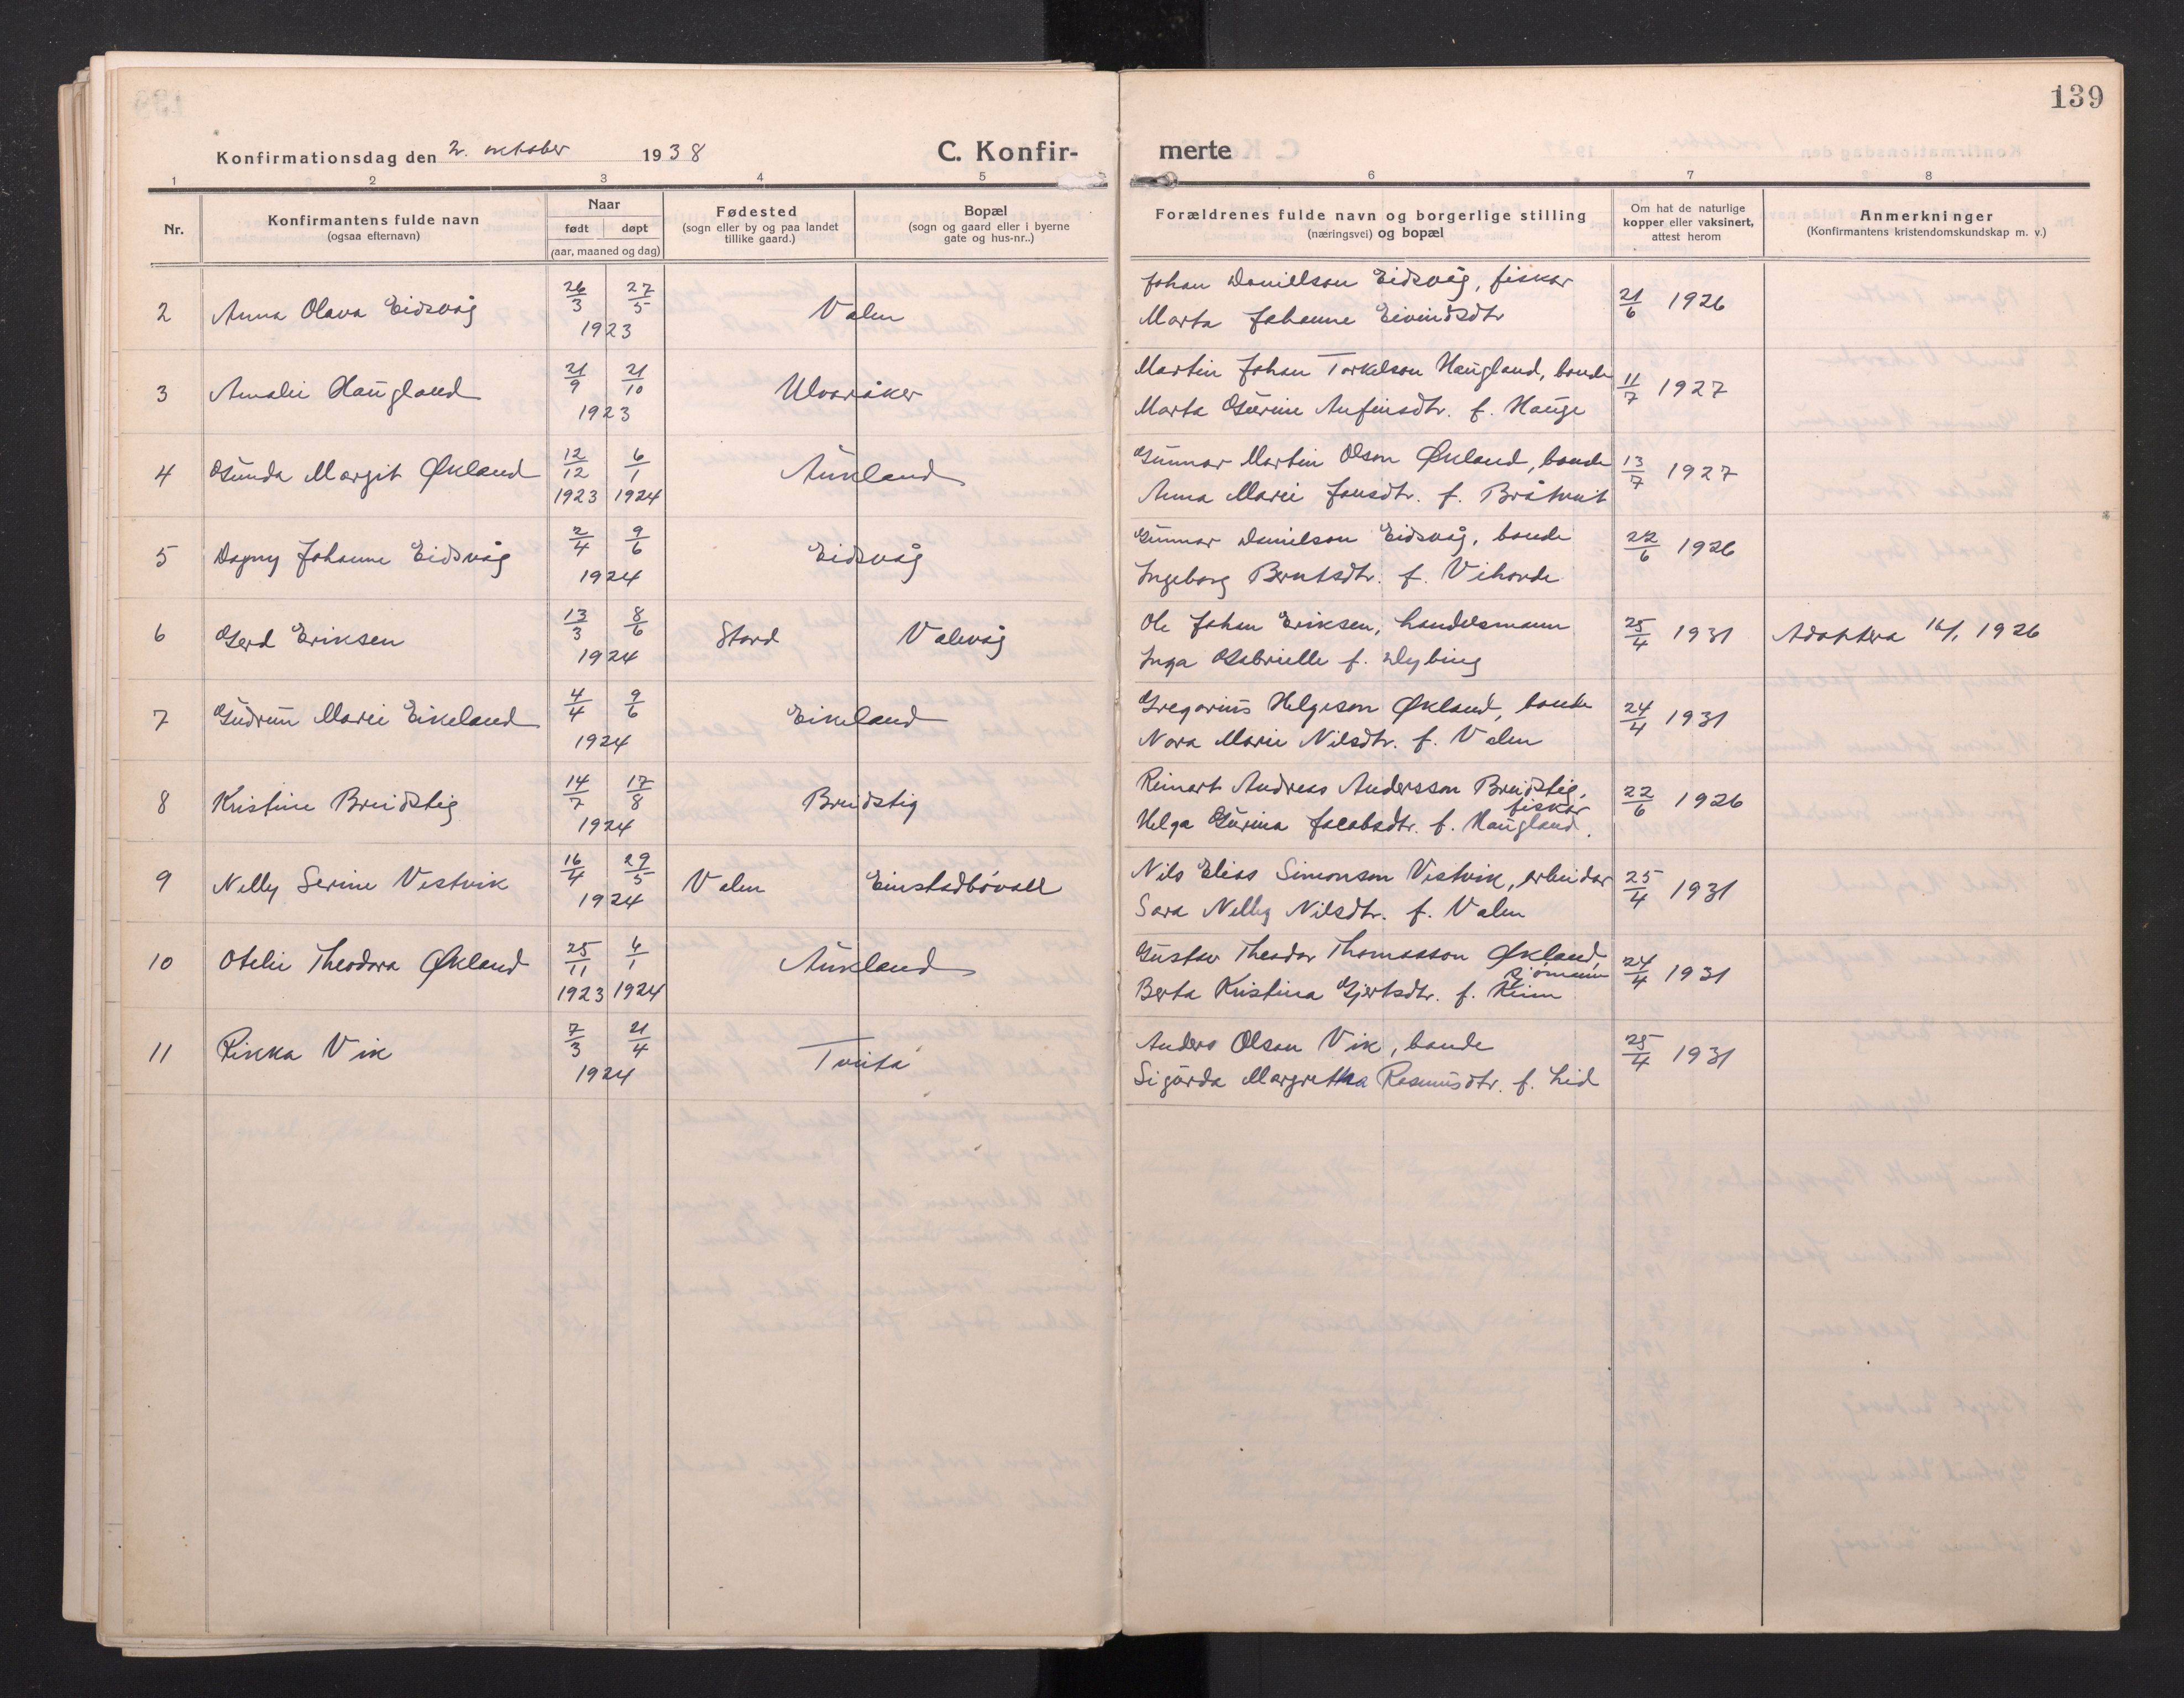 139
Konfirmationsdag den 2. oktober 1938
C. Konfir-
merte
1 2 3 4 5 6 7 8
Nr.
Konfirmantens fulde navn
(ogsaa efternavn)
Naar
født døpt
(aar, maaned og dag)
Fødested
(sogn eller by og paa landet
tillike gaard.)
Bopæl
(sogn og gaard eller i byerne
gate og hus-nr..)
Forældrenes fulde navn og borgerlige stilling
(næringsvei) og bopæl
Om hat de naturlige
kopper eller vaksinert,
attest herom
Anmerkninger
(Konfirmantens kristendomskundskap m. v.)
2 Anna Olava Eidsvåg 26/3 27/5 1923 Valen
Johan Danielson Eidsvåg, fiskar 21/6 1926
Marta Johanne Eivindsdtr
3 Amalie Haugland 21/9 21/10 1923 Ulvaråker
Martin Johan Torkelson Haugland, bonde 11/7 1927
Marta Gurine Anfinsdtr. f. Hauge
4 Gunda Margit Økland 12/12 1923 6/1 1924 Aukland
Gunnar Martin Olson Økland, bonde 13/7 1927
Anna Marei Jonsdtr. f. Bråtveit
5 Dagny Johanne Eidsvåg 2/4 9/6 1924 Eidsvåg
Gunnar Danielson Eidsvåg, bonde 22/6 1926
Ingeborg Berntsdtr. f. Vihovde
6 Gerd Eriksen 13/3 8/6 1924 Stord Valevåg
Ole Johan Eriksen, handelsmann 25/4 1931 Adoptera 16/1 1926
Inga Gabrielle f. Dybing
7 Gudrun Marei Eikeland 4/4 9/6 1924 Eikeland
Gregorius Helgeson Økland, bonde 24/4 1931
Nora Marie Nilsdtr. f. Valen
8 Kristine Breidstig 14/7 17/8 1924 Breidstig
Reinart Andreas Andersson Breidstig, 22/6 1926
fiskar
Helga Gurina Jacobsdtr. f. Haugland.
9 Nelly Serine Vestvik 16/4 29/5 1924 Valen Einstadbövoll
Nils Elias Simonson Vestvik, arbeidar 25/4 1931
Sara Nelly Nilsdtr. f. Valen
10 Otelie Theodora Økland 25/11 1923 6/1 1924 Aukland
Gustav Theodor Thomasson Økland, 24/4 1931
sjömann
Berta Kristina Gjertsdtr. f. Reim
11 Rikka Vik 7/3 21/4 1924 Tveita
Anders Olson Vik, bonde 25/4 1931
Sigurda Margretha Rasmusdtr. f. Lid